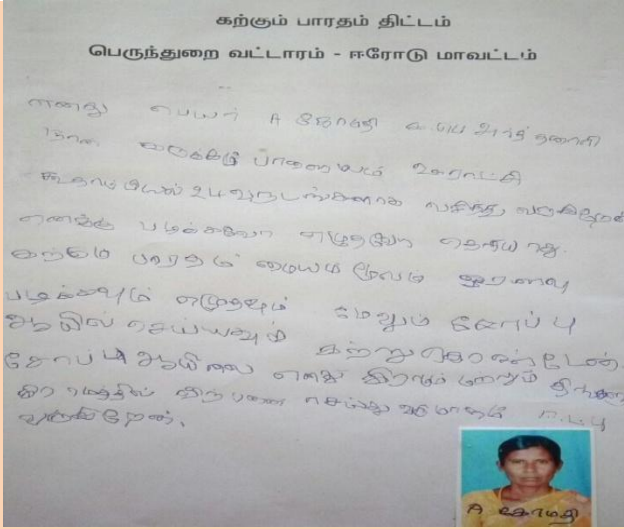 கற்கும் பாரதம் திட்டம்
பெருந்துறை வட்டாரம் - ஈரோடு மாவட்டம்
எனது பெயர் A கோமதி
நான் பாளையம் ஊராட்சி
வசித்து வருகிறேன்
எனக்கு படிக்கவோ எழுதவோ தெரியாது.
கற்கும் பாரதம் மையம் மூலம் ஓரளவு
படிக்கவும் எழுதவும் மேலும் சோப்பு
ஆயில் செய்யவும் கற்று கொண்டேன்.
சோப்பு ஆயிலை எனது கிராமம் மற்றும்
கிராமத்தில் விற்பனை செய்து
வருகிறேன்.
A கோமதி